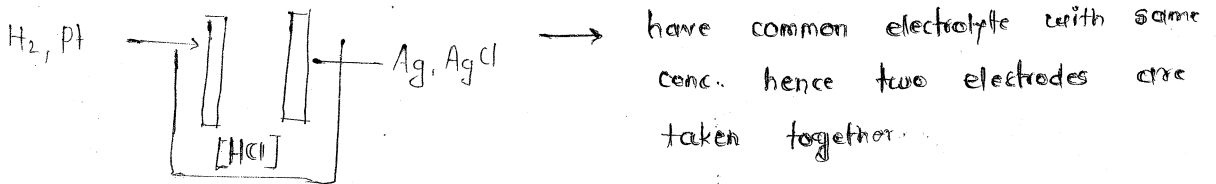 H₂, Pt → Ag, AgCl → have common electrolyte with same
conc. hence two electrodes are
[HCl] taken together.